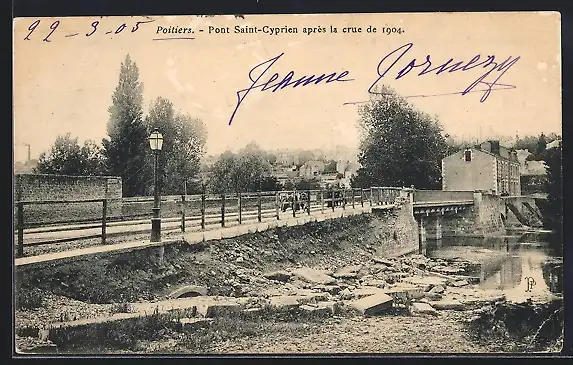 22-3-05
Poitiers. - Pont Saint-Cyprien après la crue de 1904.
Jeanne